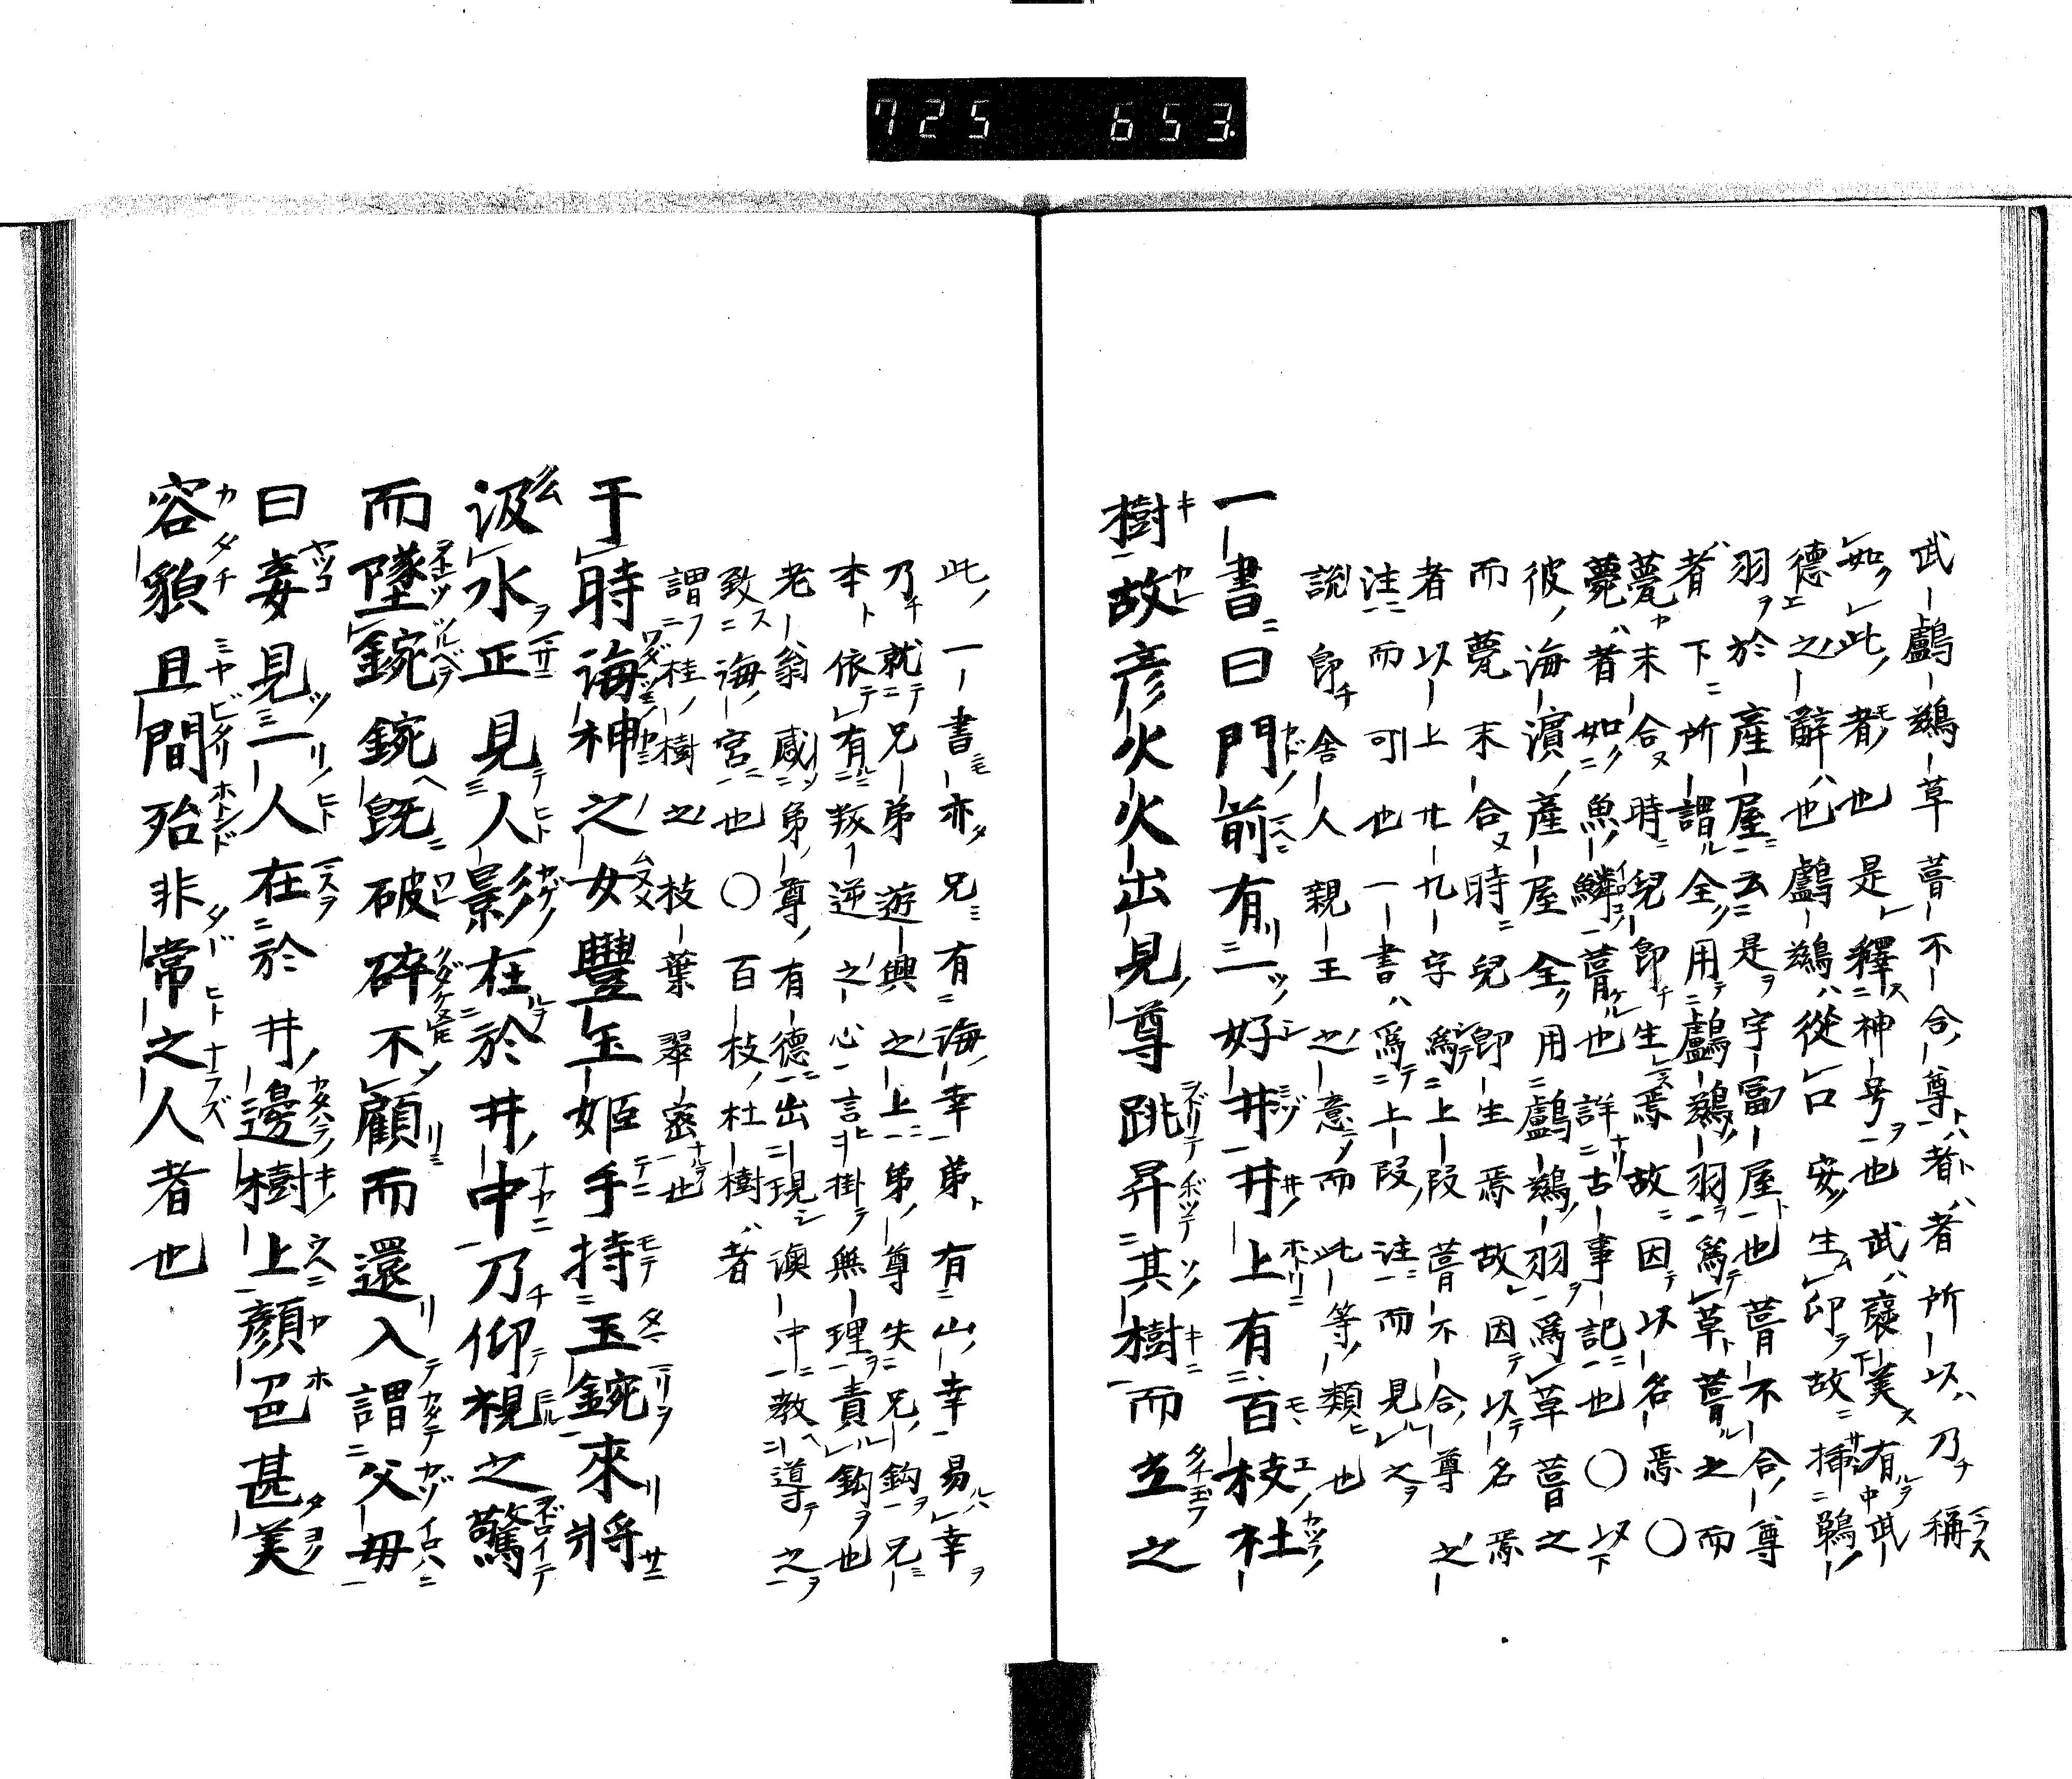 725 653
武鸕鷀草葺不合尊者者所以乃稱
如此者也是釋神号也武褒美有武
德之辭也鸕鷀從口安生印故挿鷀
羽於產屋云是宇冨屋也葺不合尊
者下所謂全用鸕鷀羽為草葺之而
甍末合時兒即生焉故因以名焉〇
甍者如魚鱗葺也詳古事記也〇以下
彼海濵產屋全用鸕鷀羽為草葺之
而甍末合時兒即生焉故因以名焉
者以上廿九字為上段葺不合尊之
注而可也一書為上段注而見之
說即舍人親王之意而此等類也
一書曰門前有一好井井上有百枝杜
樹故彦火火出見尊跳昇其樹而立之
此一書亦兄有海幸弟有山幸易幸
乃就兄弟遊興之上弟尊失兄鈎兄
本依有叛逆之心言掛無理責鈎也
老翁感弟尊有德出現澳中教導之
致海宮也〇百枝杜樹者
謂桂樹之枝葉翠密也
于時海神之女豐玉姬手持玉鋺來將
汲水正見人影在於井中乃仰視之驚
而墜鋺鋺既破碎不顧而還入謂父母
曰妾見一人在於井邊樹上顏色甚美
容貌且閒殆非常之人者也